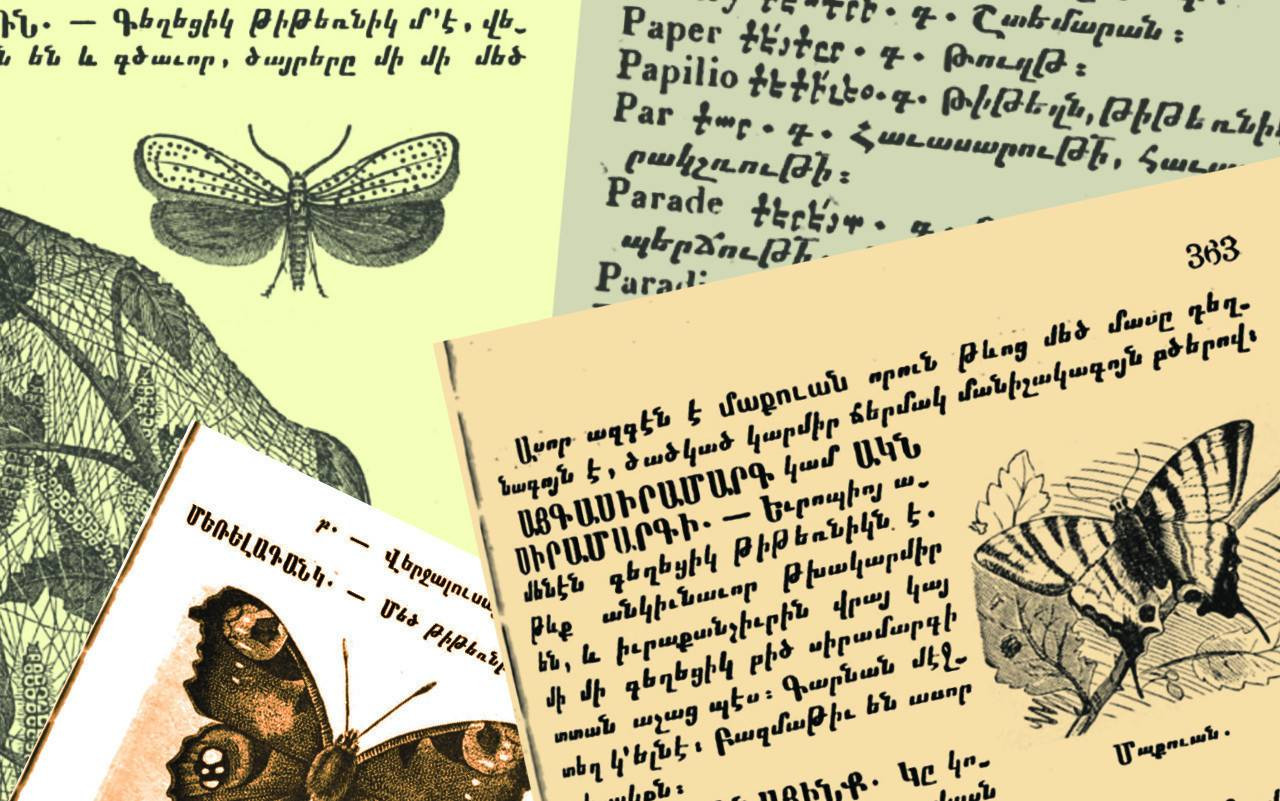 ՅՆ. — Գեղեցիկ թիթեռնիկ մ՚է, վե֊
ն են և գծաւոր, ծայրերը մի մի մեծ
Շտեմարան :
Paper գ. Թուղթ :
Papilio գ. Թիթեղն, Թիթեռնիկ
Par գ. Հաւասարութի, Հաւա
րակշռութի :
Parade
պերճութի
Paradi
363
Ասոր ազգէն է մաքուան որուն թևոց մեծ մասը դեղ֊
նագոյն է, ծածկած կարմիր ճերմակ մանիշակագոյն բծերով։
ԱՅԳԱՍԻՐԱՄԱՐԳ կամ ԱԿՆ
ՍԻՐԱՄԱՐԳԻ. — Եւրոպիոյ ա֊
մենէն գեղեցիկ թիթեռնիկն է.
թևք անկիւնաւոր թխակարմիր
են, և իւրաքանչիւրին վրայ կայ
մի մի գեղեցիկ բիծ սիրամարգի
տտան աչաց պէս։ Գարնան մէջ֊
տեղ կ՚ելնէ։ Բազմաթիւ են ասոր
Կը կո֊
Մաքուան.
ր. — Վերջալուսա
ՄԵՌԵԼԱԳԱՆԿ. — Մեծ թիթեռնի